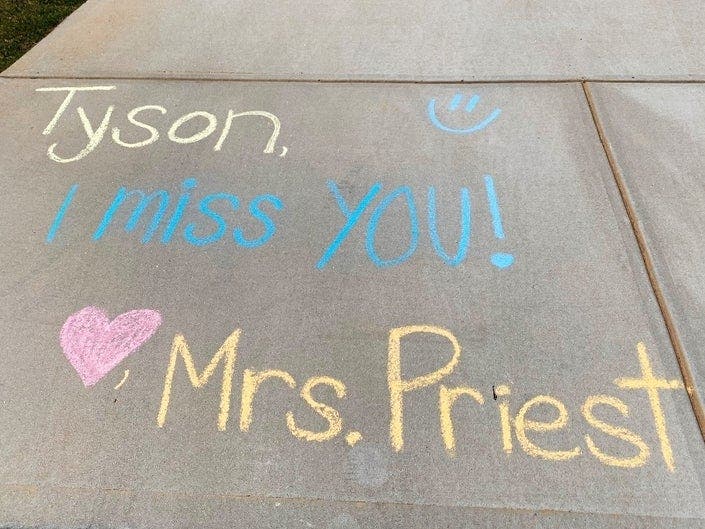 Tyson,
I miss YOU!
, Mrs. Priest